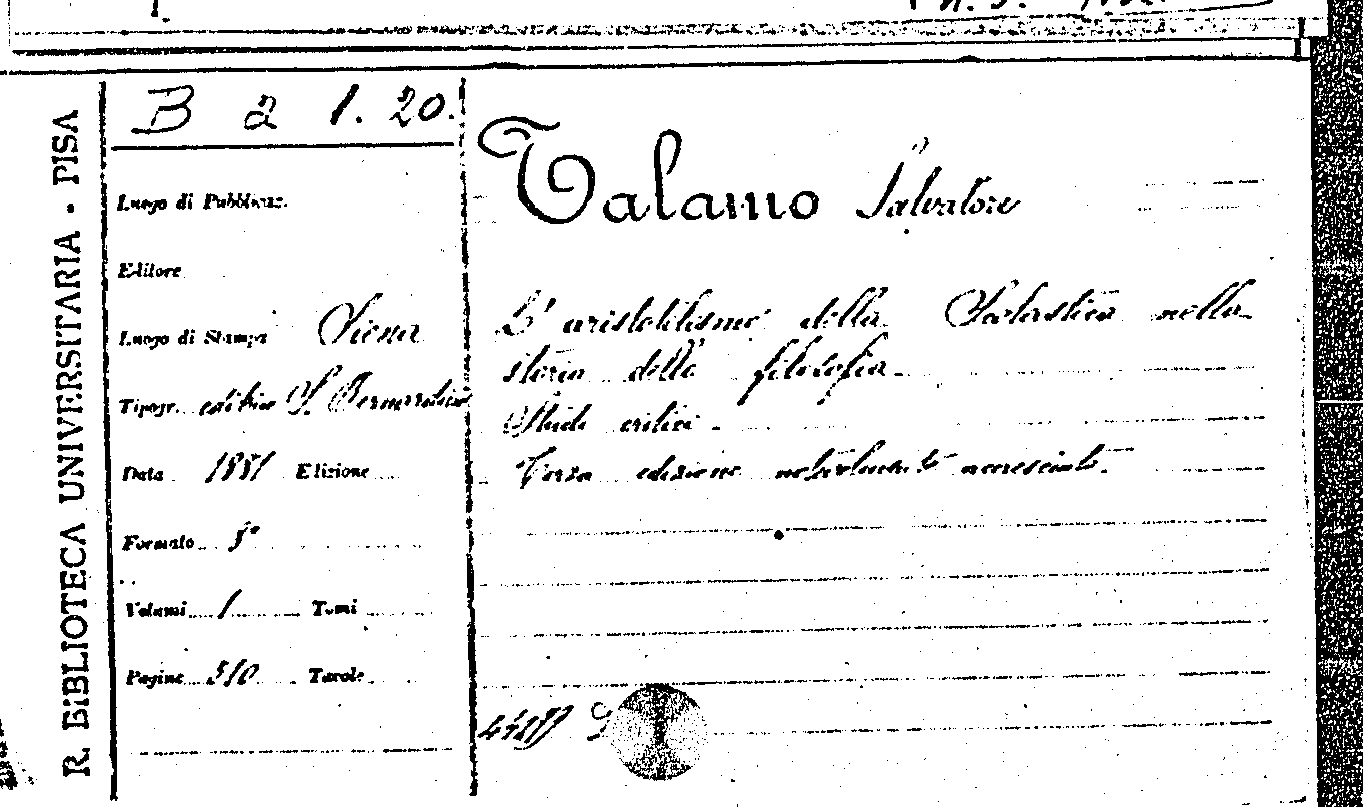 R. BIBLIOTECA UNIVERSITARIA - PISA
B a 1. 20.
Luogo di Pubblicaz.
Editore
Luogo di Stampa Siena
Tipogr. editrice S. Bernardino
Data 1881 Edizione
Formato 8°
Volumi 1 Tomi
Pagine 510 Tavole
Talamo Salvatore
L'aristotelismo della Scolastica nella
storia della filosofia.
Studi critici.
Terza edizione notevolmente accresciuta.